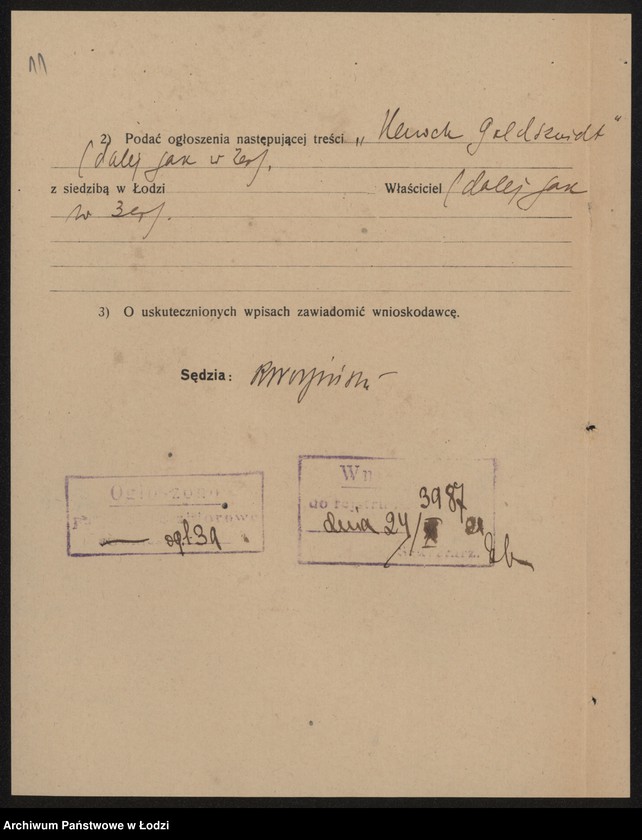 11
2) Podać ogłoszenia następującej treści „Henoch Goldszmidt"
(dalej jak w
z siedzibą w Łodzi Właściciel (dalej jak
w
3) O uskutecznionych wpisach zawiadomić wnioskodawcę.
Sędzia:
Ogłoszono
ogł. 39
do rejestru 3987
dnia 24/
Archiwum Państwowe w Łodzi